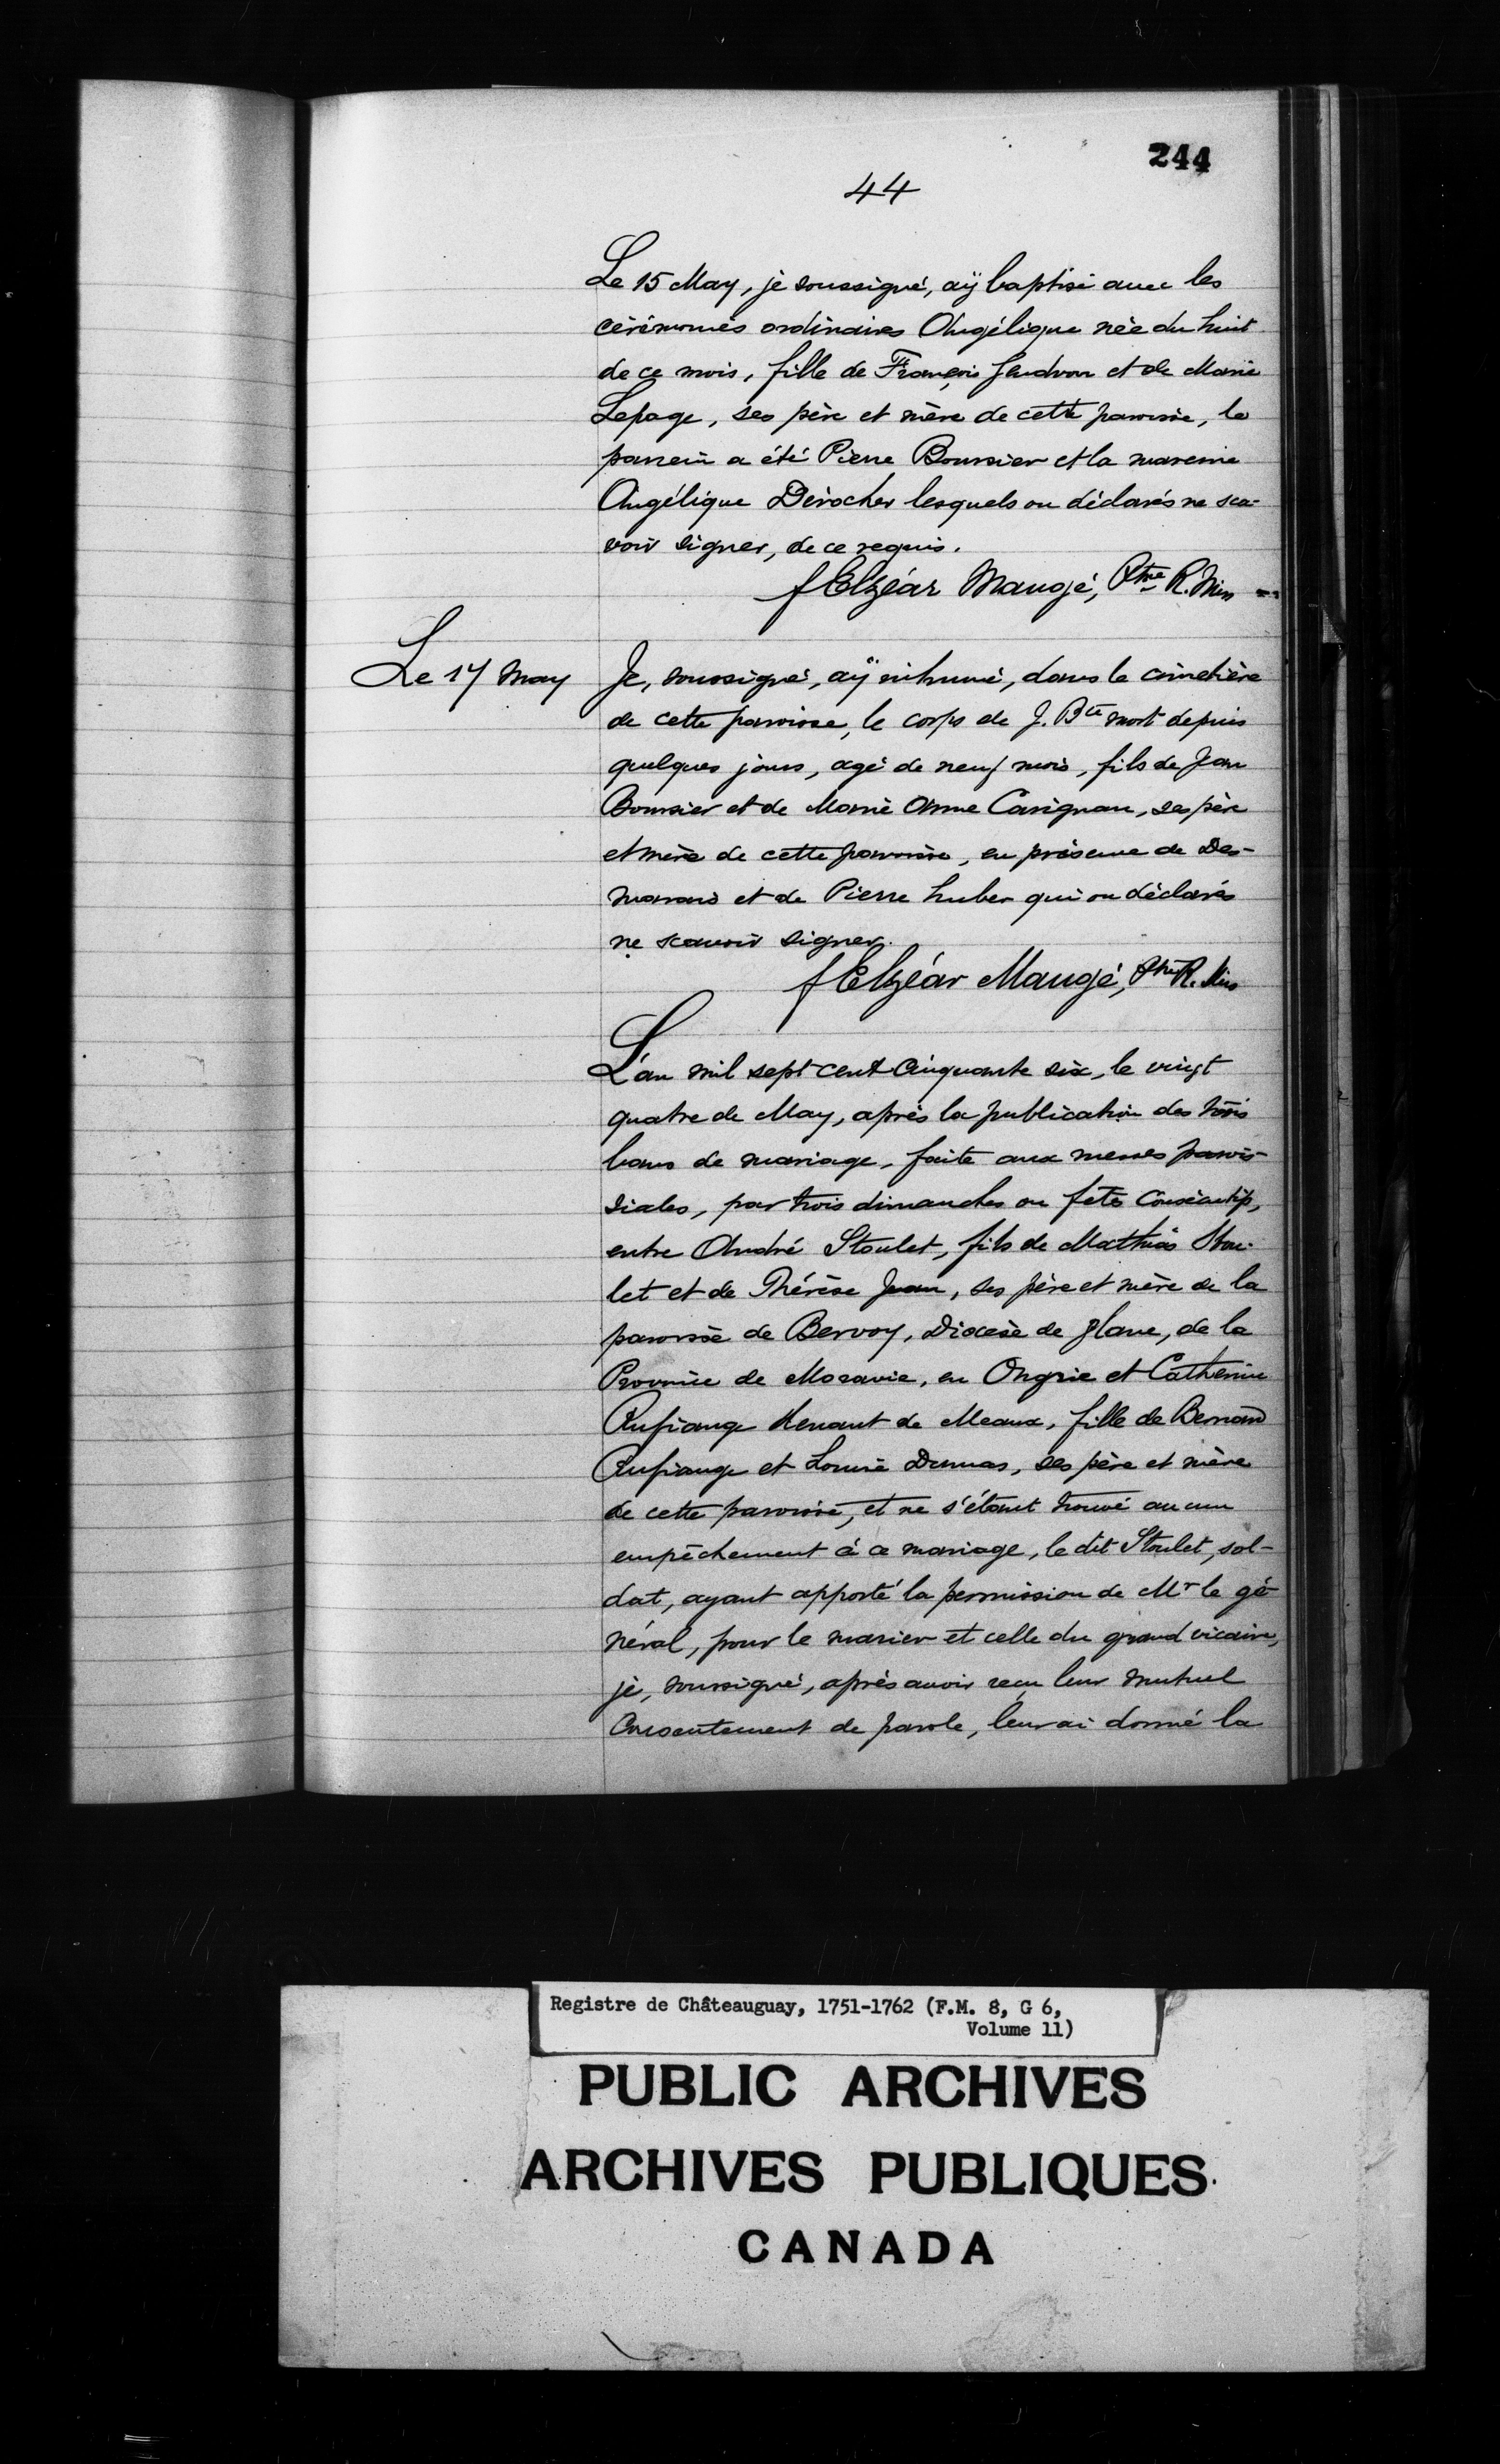 244
44
Le 15 May, je soussigné, aÿ baptisé avec les
cérémonies ordinaires Angélique née du huit
de ce mois, fille de François Gendron et de Marie
Lepage, ses père et mère de cette paroisse, le
parrein a été Pierre Boursier et la mareine
Angélique Dérocher lesquels on déclarés ne sca-
voir signer, de ce requis.
f Elzéar Maugé, Ptre R. Min
Le 17 May
Je, soussigné, aÿ inhumé, dans le cimetière
de cette paroisse, le corps de J. Bte mort depuis
quelques jours, agé de neuf mois, fils de Jean
Boursier et de Marie Anne Carignan, ses père
et mère de cette paroisse, en présence de Des-
marais et de Pierre huber qui on déclarés
ne scavoir signer.
f Elzéar Maugé, Ptre R. Min
L'an mil sept cent cinquante six, le vingt
quatre de May, après la publication des trois
bans de mariage, faite aux messes parois-
siales, par trois dimanches ou fêtes consécutifs,
entre André Stoulet, fils de Mathias Stou-
let et de Thérèse Jean, ses père et mère de la
paroisse de Bervoy, Diocèse de glane, de la
Province de Moravie, en Ongrie et Catherine
Rufiange de Meaux, fille de Bernard
Rufiange et Louise Dumas, ses père et mère
de cette paroisse, et ne s'étant trouvé aucun
empêchement à ce mariage, le dit Stoulet, sol-
dat, ayant apporté la permission de Mr le gé-
néral, pour le marier et celle du grand vicaire,
je, soussigné, après avoir reçu leur mutuel
consentement de parole, leur ai donné la
Registre de Châteauguay, 1751-1762 (F.M. 8, G 6,
Volume 11)
PUBLIC ARCHIVES
ARCHIVES PUBLIQUES
CANADA